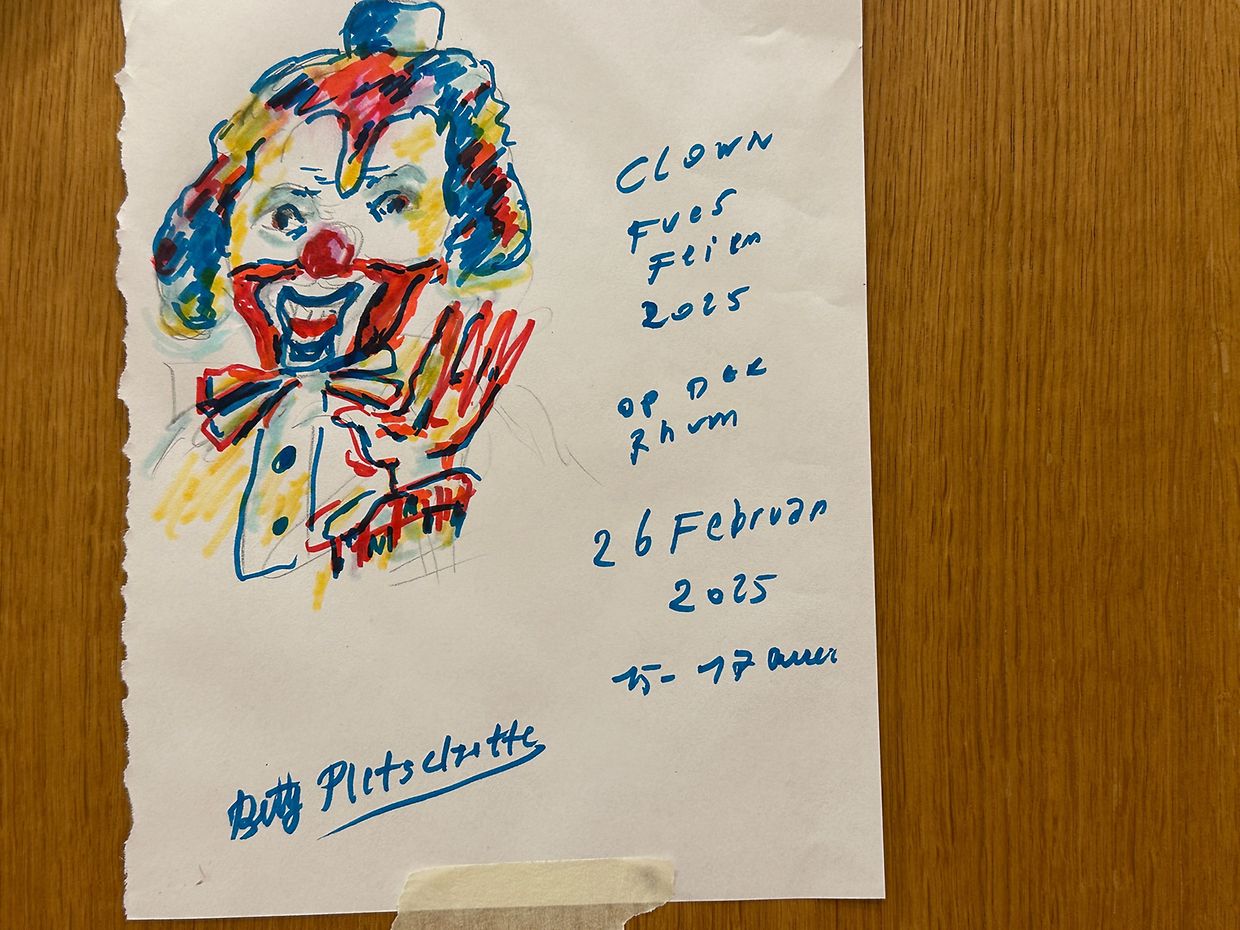 CLOWN
Fues
Feier
2025
op Der
Rhum
26 Februar
2025
15 - 17 auer
Betty Pletschette